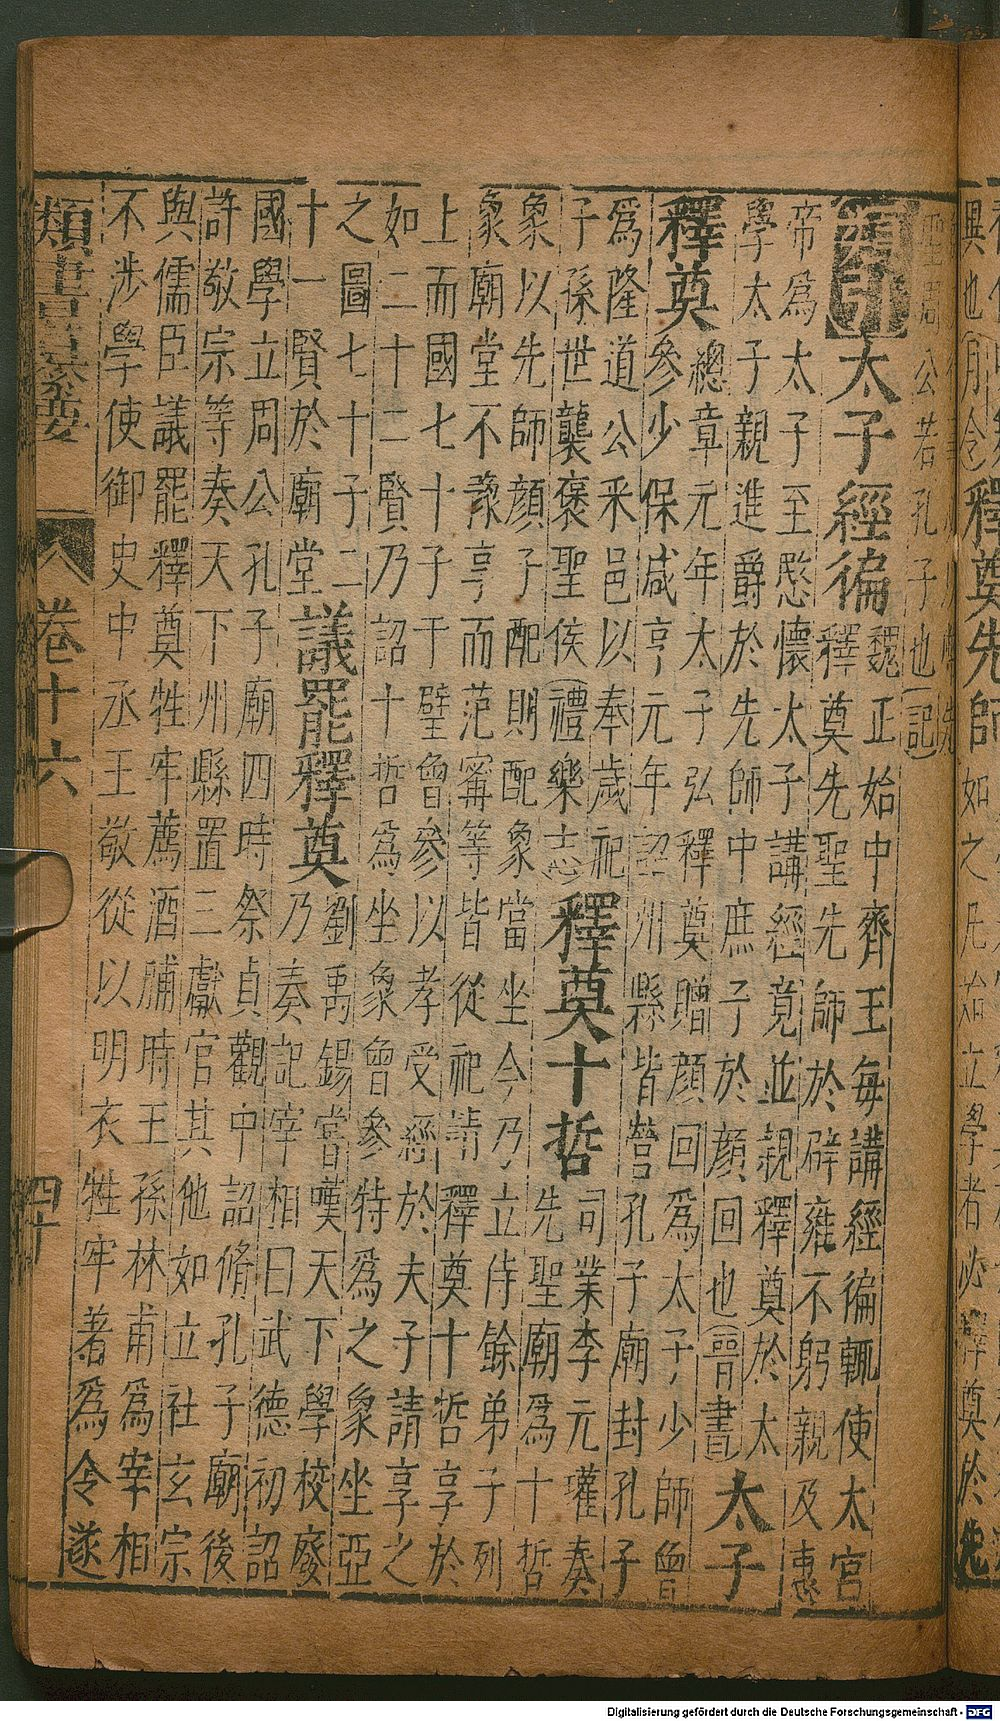 異也(月令)釋奠先師如之凡始立學者必釋奠於先
聖周公若孔子也(記)
太子經徧
魏正始中齊王每講經徧輒使太官
釋奠先聖先師於辟雍不躬親及惠
帝為太子至愍懷太子講經竟並親釋奠於太
學太子親進爵於先師中庶子於顏回也(晉書)
太子
釋奠
總章元年太子弘釋奠贈顏回為太子少師曾
參少保咸亨元年詔州縣皆營孔子廟封孔子
為隆道公釆邑以奉歲祀
子孫世襲褒聖侯(禮樂志)
釋奠十哲
司業李元瓘奏
先聖廟為十哲
象以先師顏子配則配象當坐今乃立侍餘弟子列
象廟堂不豫享而范甯等皆從祀請釋奠十哲享於
上而國七十子于壁曾參以孝受經於夫子請享之
如二十二賢乃詔十哲為坐象曾參特為之象坐亞
之圖七十子二
十一賢於廟堂
議罷釋奠
劉禹錫嘗嘆天下學校廢
乃奏記宰相曰武德初詔
國學立周公孔子廟四時祭貞觀中詔脩孔子廟後
許敬宗等奏天下州縣置三獻官其他如立社玄宗
與儒臣議罷釋奠牲牢薦酒脯時王孫林甫為宰相
不涉學使御史中丞王敬從以明衣牲牢著為令遂
類書纂要 卷十六 四十
Digitalisierung gefördert durch die Deutsche Forschungsgemeinschaft - DFG